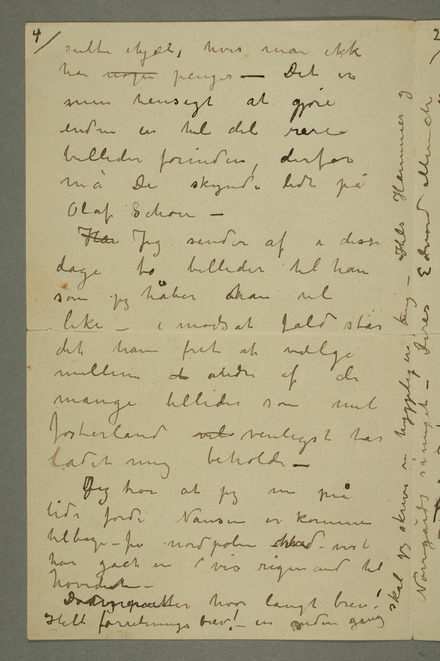 4/
sulte ihjæl, hvis man ikk
har nogen penge – Det er
min hensigt at gjøre
endnu en hel del rare
billeder forinden, derfor
må De skynde lidt på
Olaf Schou –
Har Jeg sender af i disse
dage to billeder til ham
som jeg håber han vil
like – i modsat fald står
det ham frit at vælge
mellem andre af de
mange billeder som mit
fosterland venligst har
ladet mig beholde –
Jeg hør at jeg er på
tide fordi Nansen er kommen
tilbage fra nordpolen
har gået en vis rigmand til
hovedet –
hvor langt brev!
Helt forretnings brev! – en anden gang
skal jeg skrive en hyggelig en – Hils Hammer og
Norregårds så meget – Deres Edvard Munch
2